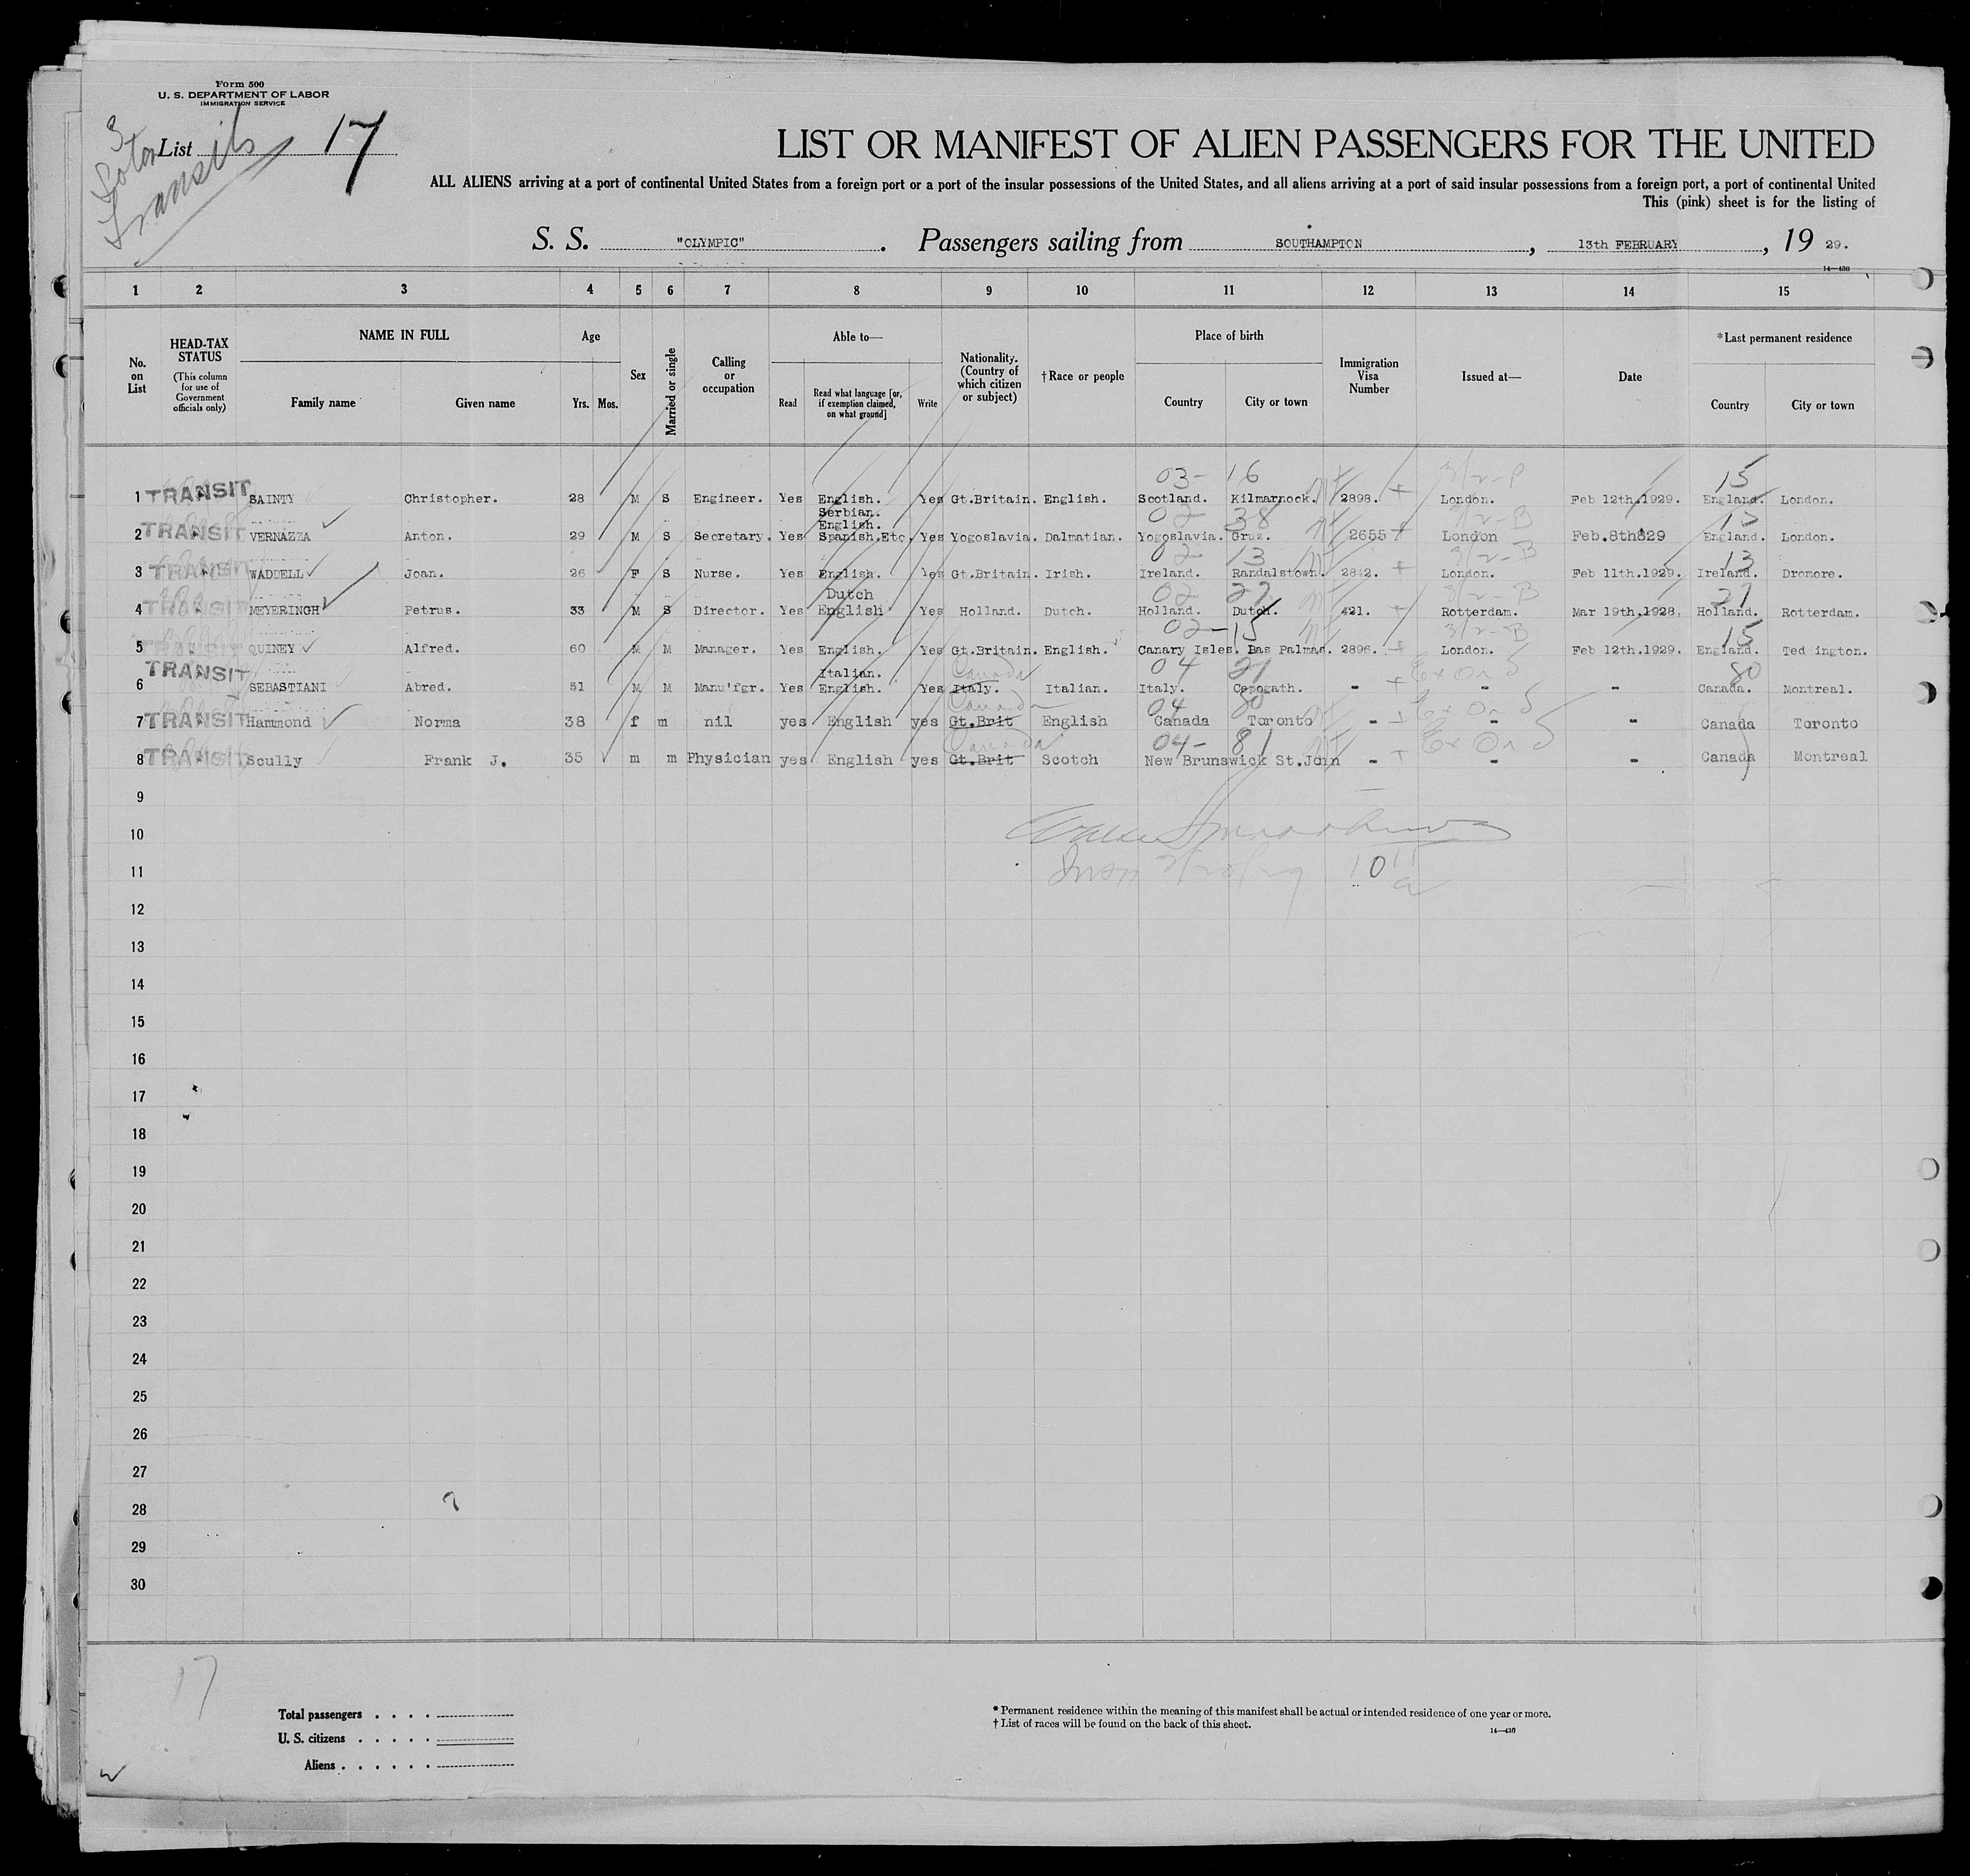 Form 500
U. S. DEPARTMENT OF LABOR
IMMIGRATION SERVICE
3
Soton
Transits
List 17
LIST OR MANIFEST OF ALIEN PASSENGERS FOR THE UNITED
ALL ALIENS arriving at a port of continental United States from a foreign port or a port of the insular possessions of the United States, and all aliens arriving at a port of said insular possessions from a foreign port, a port of continental United
This (pink) sheet is for the listing of
S. S. "OLYMPIC". Passengers sailing from SOUTHAMPTON, 13th FEBRUARY, 19 29.
14—430
1 2 3 4 5 6 7 8 9 10 11 12 13 14 15
No. on List
HEAD-TAX STATUS (This column for use of Government officials only)
NAME IN FULL
Family name Given name
Age
Yrs. Mos.
Sex
Married or single
Calling or occupation
Able to—
Read Read what language [or, if exemption claimed, on what ground] Write
Nationality. (Country of which citizen or subject)
†Race or people
Place of birth
Country City or town
Immigration Visa Number
Issued at—
Date
*Last permanent residence
Country City or town
03- 16 15
1 TRANSIT SAINTY Christopher. 28 M S Engineer. Yes English. Yes Gt.Britain. English. Scotland. Kilmarnock. 2898. London. Feb 12th.1929. England. London.
Serbian.
English. 02 38 3/2-B 15
2 TRANSIT VERNAZZA Anton. 29 M S Secretary. Yes Spanish,Etc. Yes Yogoslavia. Dalmatian. Yogoslavia. Gruz. 2655 London Feb.8th829 England. London.
02 13 3/2-B 13
3 TRANSIT WADDELL Joan. 26 F S Nurse. Yes English. Yes Gt.Britain. Irish. Ireland. Randalstown. 2842. London. Feb 11th.1929. Ireland. Dromore.
Dutch 02 27 3/2-B 27
4 TRANSIT MEYERINGH Petrus. 33 M S Director. Yes English Yes Holland. Dutch. Holland. Dutch. 421. Rotterdam. Mar 19th.1928. Holland. Rotterdam.
02-15 3/2-B 15
5 TRANSIT QUINEY Alfred. 60 M M Manager. Yes English. Yes Gt.Britain. English. Canary Isles. Bas Palmas. 2896. London. Feb 12th.1929. England. Ted ington.
Italian. Canada 04 21 Ex On 5 80
6 TRANSIT SEBASTIANI Abred. 51 M M Manu'fgr. Yes English. Yes Italy. Italian. Italy. Cepogath. - - - Canada. Montreal.
Canada 04 80 Ex On 5
7 TRANSIT Hammond Norma 38 f m nil yes English yes Gt.Brit English Canada Toronto - - - Canada Toronto
Canada 04- 81 Ex On 5
8 TRANSIT Scully Frank J. 35 m m Physician yes English yes Gt.Brit Scotch New Brunswick St.John - - - Canada Montreal
9
10
11
12
13
14
15
16
17
18
19
20
21
22
23
24
25
26
27
28
29
30
17
Total passengers . . . .
U. S. citizens . . . . .
Aliens . . . . . .
* Permanent residence within the meaning of this manifest shall be actual or intended residence of one year or more.
† List of races will be found on the back of this sheet.
14—430